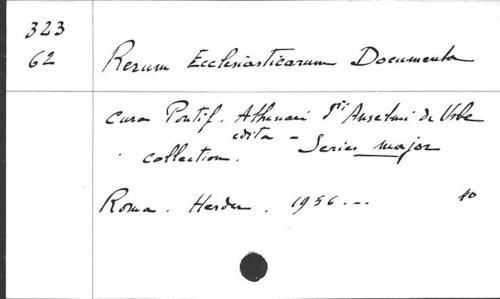 323
62
Rerum Ecclesiasticarum Documenta
cura Pontif. Athenaei Sti Anselmi de Urbe
edita - Series major
collection.
Roma. Herder. 1956...